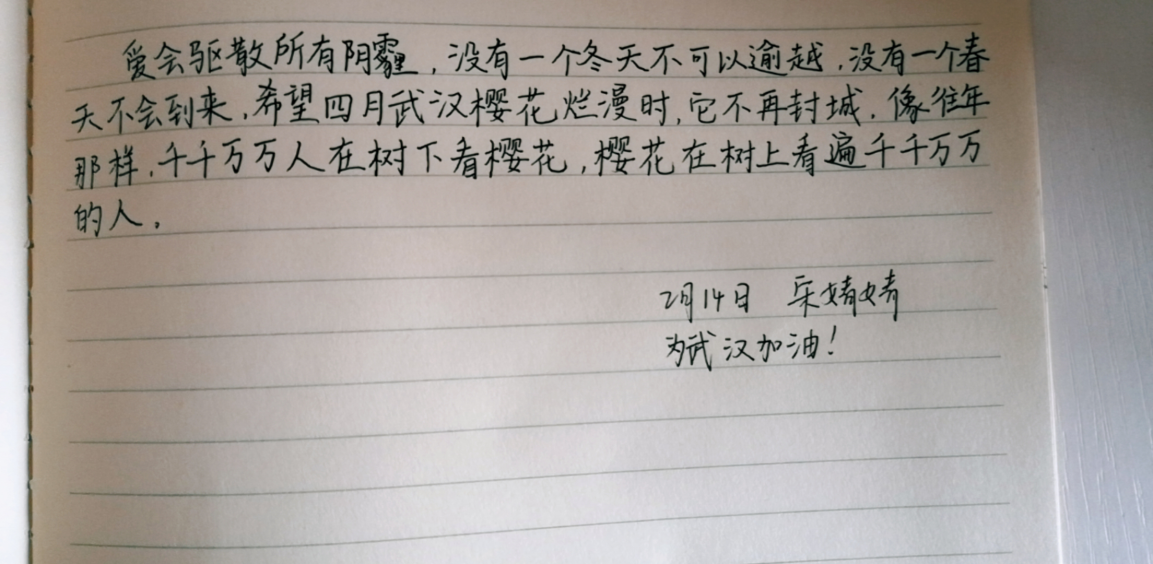 爱会驱散所有阴霾，没有一个冬天不可以逾越，没有一个春
天不会到来，希望四月武汉樱花烂漫时，它不再封城，像往年
那样，千千万万人在树下看樱花，樱花在树上看遍千千万万
的人。
2月14日 婧婧
为武汉加油！